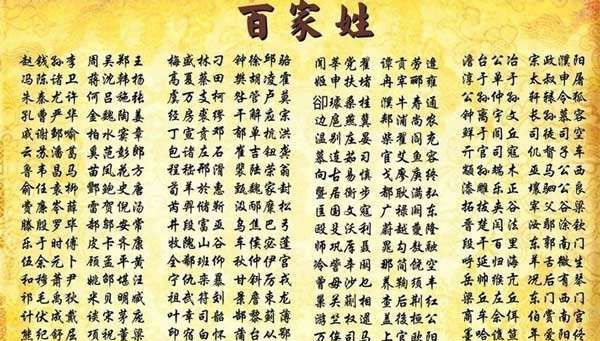 百家姓
赵钱孙李 周吴郑王
冯陈褚卫 蒋沈韩杨
朱秦尤许 何吕施张
孔曹严华 金魏陶姜
戚谢邹喻 柏水窦章
云苏潘葛 奚范彭郎
鲁韦昌马 苗凤花方
俞任袁柳 酆鲍史唐
费廉岑薛 雷贺倪汤
滕殷罗毕 郝邬安常
乐于时傅 皮卞齐康
伍余元卜 顾孟平黄
和穆萧尹 姚邵湛汪
祁毛禹狄 米贝明臧
计伏成戴 谈宋茅庞
熊纪舒屈 项祝董梁
梅盛林刁 钟徐邱骆
高夏蔡田 樊胡凌霍
虞万支柯 昝管卢莫
经房裘缪 干解应宗
丁宣贲邓 郁单杭洪
包诸左石 崔吉钮龚
程嵇邢滑 裴陆荣翁
荀羊於惠 甄曲家封
芮羿储靳 汲邴糜松
井段富巫 乌焦巴弓
牧隗山谷 车侯宓蓬
全郗班仰 秋仲伊宫
宁仇栾暴 甘钭厉戎
祖武符刘 景詹束龙
印宿白怀 蒲邰从鄂
闻莘党翟 谭贡劳逄
姬申扶堵 冉宰郦雍
郤璩桑桂 濮牛寿通
边扈燕冀 郏浦尚农
温别庄晏 柴瞿阎充
慕连茹习 宦艾鱼容
向古易慎 戈廖庾终
暨居衡步 都耿满弘
匡国文寇 广禄阙东
欧殳沃利 蔚越夔隆
师巩厍聂 晁勾敖融
冷訾辛阚 那简饶空
曾毋沙乜 养鞠须丰
巢关蒯相 查后荆红
游竺权逯 盖益桓公
澹台公冶 宗政濮阳
淳于单于 太叔申屠
公孙仲孙 轩辕令狐
钟离宇文 长孙慕容
鲜于闾丘 司徒司空
亓官司寇 仉督子车
颛孙端木 巫马公西
漆雕乐正 壤驷公良
晋楚闫法 汝鄢涂钦
段干百里 东郭南门
呼延归海 羊舌微生
岳帅缑亢 况后有琴
梁丘左丘 东门西门
商牟佘佴 伯赏南宫
墨哈谯笪 年爱阳佟